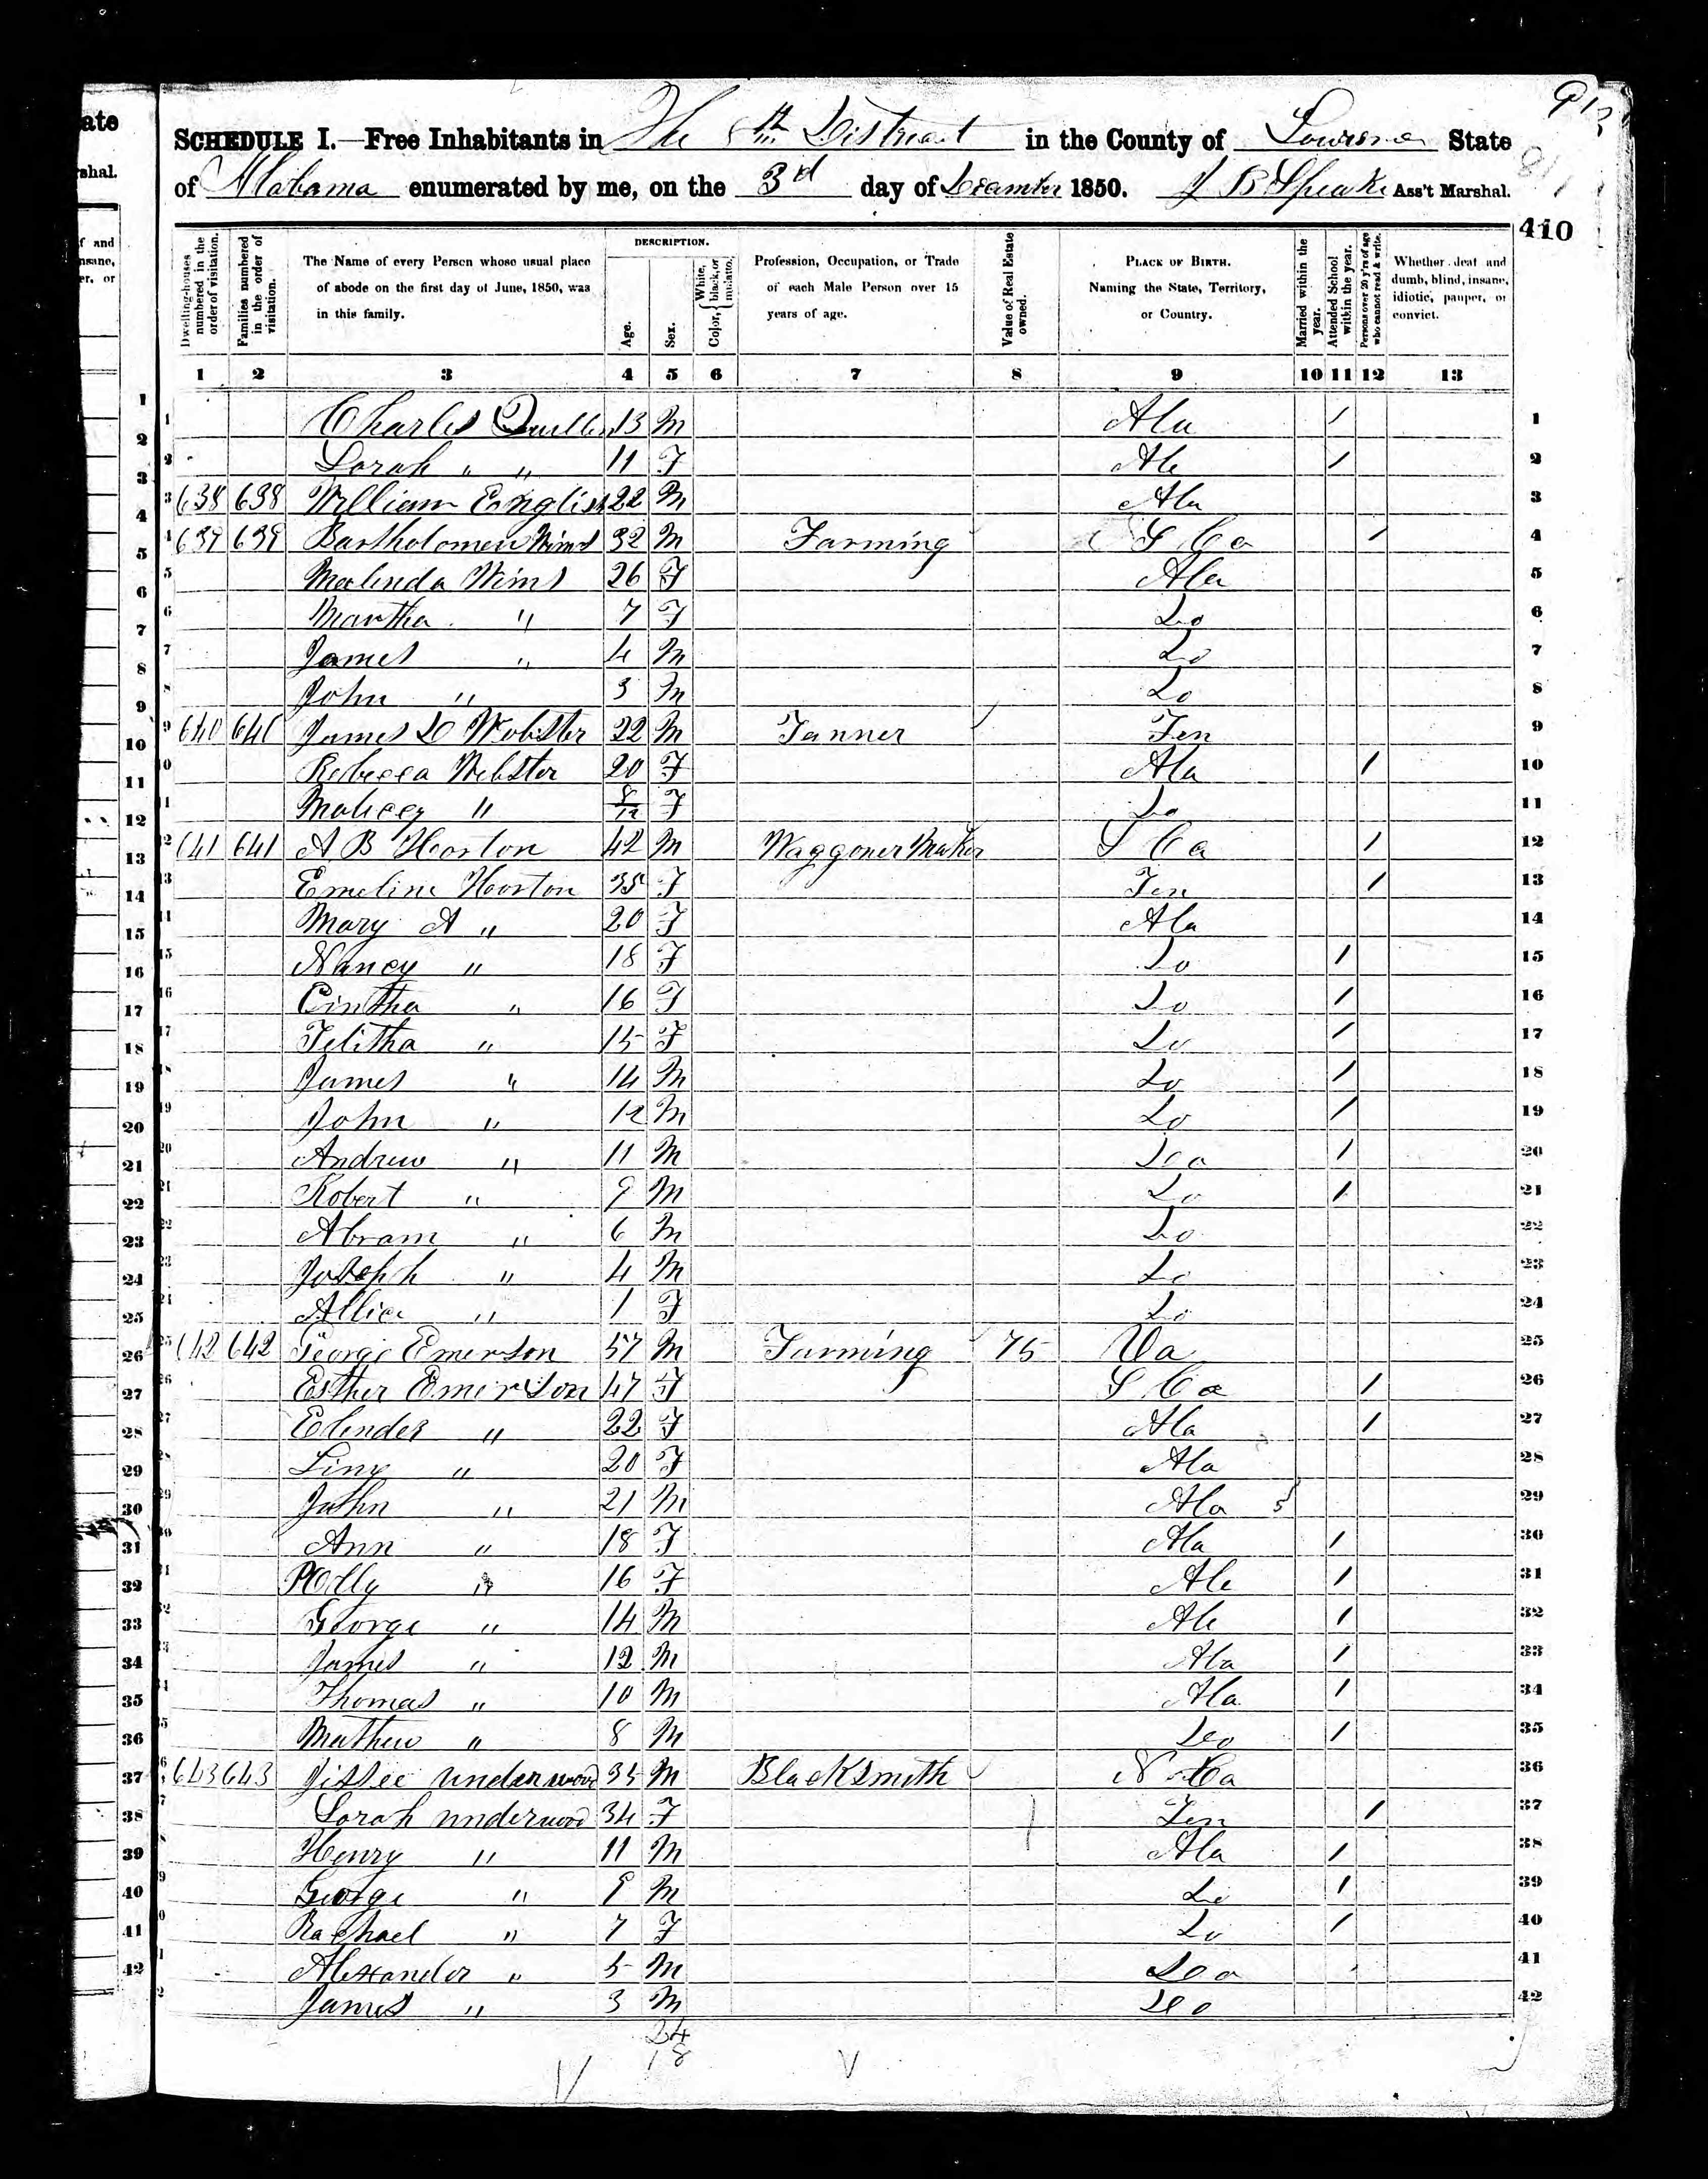 SCHEDULE I.—Free Inhabitants in The 8th District in the County of State
of Alabama enumerated by me, on the 3d day of December 1850. J B Speake Ass't Marshal.
410
Dwelling-houses numbered in the order of visitation.
Families numbered in the order of visitation.
The Name of every Person whose usual place of abode on the first day of June, 1850, was in this family.
DESCRIPTION.
Age.
Sex.
Color, White, black, or mulatto.
Profession, Occupation, or Trade of each Male Person over 15 years of age.
Value of Real Estate owned.
PLACE OF BIRTH. Naming the State, Territory, or Country.
Married within the year.
Attended School within the year.
Persons over 20 y'rs of age who cannot read & write.
Whether deaf and dumb, blind, insane, idiotic, pauper, or convict.
1 2 3 4 5 6 7 8 9 10 11 12 13
1 Charles 13 M Ala / 1
2 Sarah " " 11 F Ala / 2
3 638 638 William English 22 M Ala 3
4 639 639 Bartholomew Wims 32 M Farming S Ca / 4
5 Malinda Wims 26 F Ala 5
6 Martha " 7 F Do 6
7 James " 4 M Do 7
8 John " 3 M Do 8
9 640 640 James D Webster 22 M Tanner Ten 9
10 Rebecca Webster 20 F Ala / 10
11 " 8/12 F Do 11
12 641 641 A B Horton 42 M Waggoner Maker S Ca / 12
13 Emeline Horton 35 F Ten / 13
14 Mary A " 20 F Ala 14
15 Nancy " 18 F Do / 15
16 Cintha " 16 F Do / 16
17 Telitha " 15 F Do / 17
18 James " 14 M Do / 18
19 John " 12 M Do / 19
20 Andrew " 11 M Do / 20
21 Robert " 9 M Do / 21
22 Abram " 6 M Do 22
23 Joseph " 4 M Do 23
24 " 1 F Do 24
25 642 642 George Emerson 57 M Farming 75 Va 25
26 Esther Emerson 47 F S Ca / 26
27 Elender " 22 F Ala / 27
28 " 20 F Ala 28
29 John " 21 M Ala 29
30 Ann " 18 F Ala / 30
31 Polly " 16 F Ala / 31
32 George " 14 M Ala / 32
33 James " 12 M Ala / 33
34 Thomas " 10 M Ala / 34
35 Mathew " 8 M Do / 35
36 643 643 Jissee underwood 35 M Blacksmith N Ca 36
37 Sarah underwood 34 F Ten / 37
38 Henry " 11 M Ala / 38
39 George " 9 M Do / 39
40 Rachael " 7 F Do / 40
41 Alexander " 5 M Do 41
42 James " 3 M Do 42
24
18